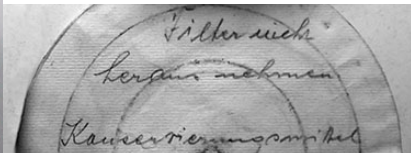 Filter nicht
heraus nehmen
Konservierungsmittel